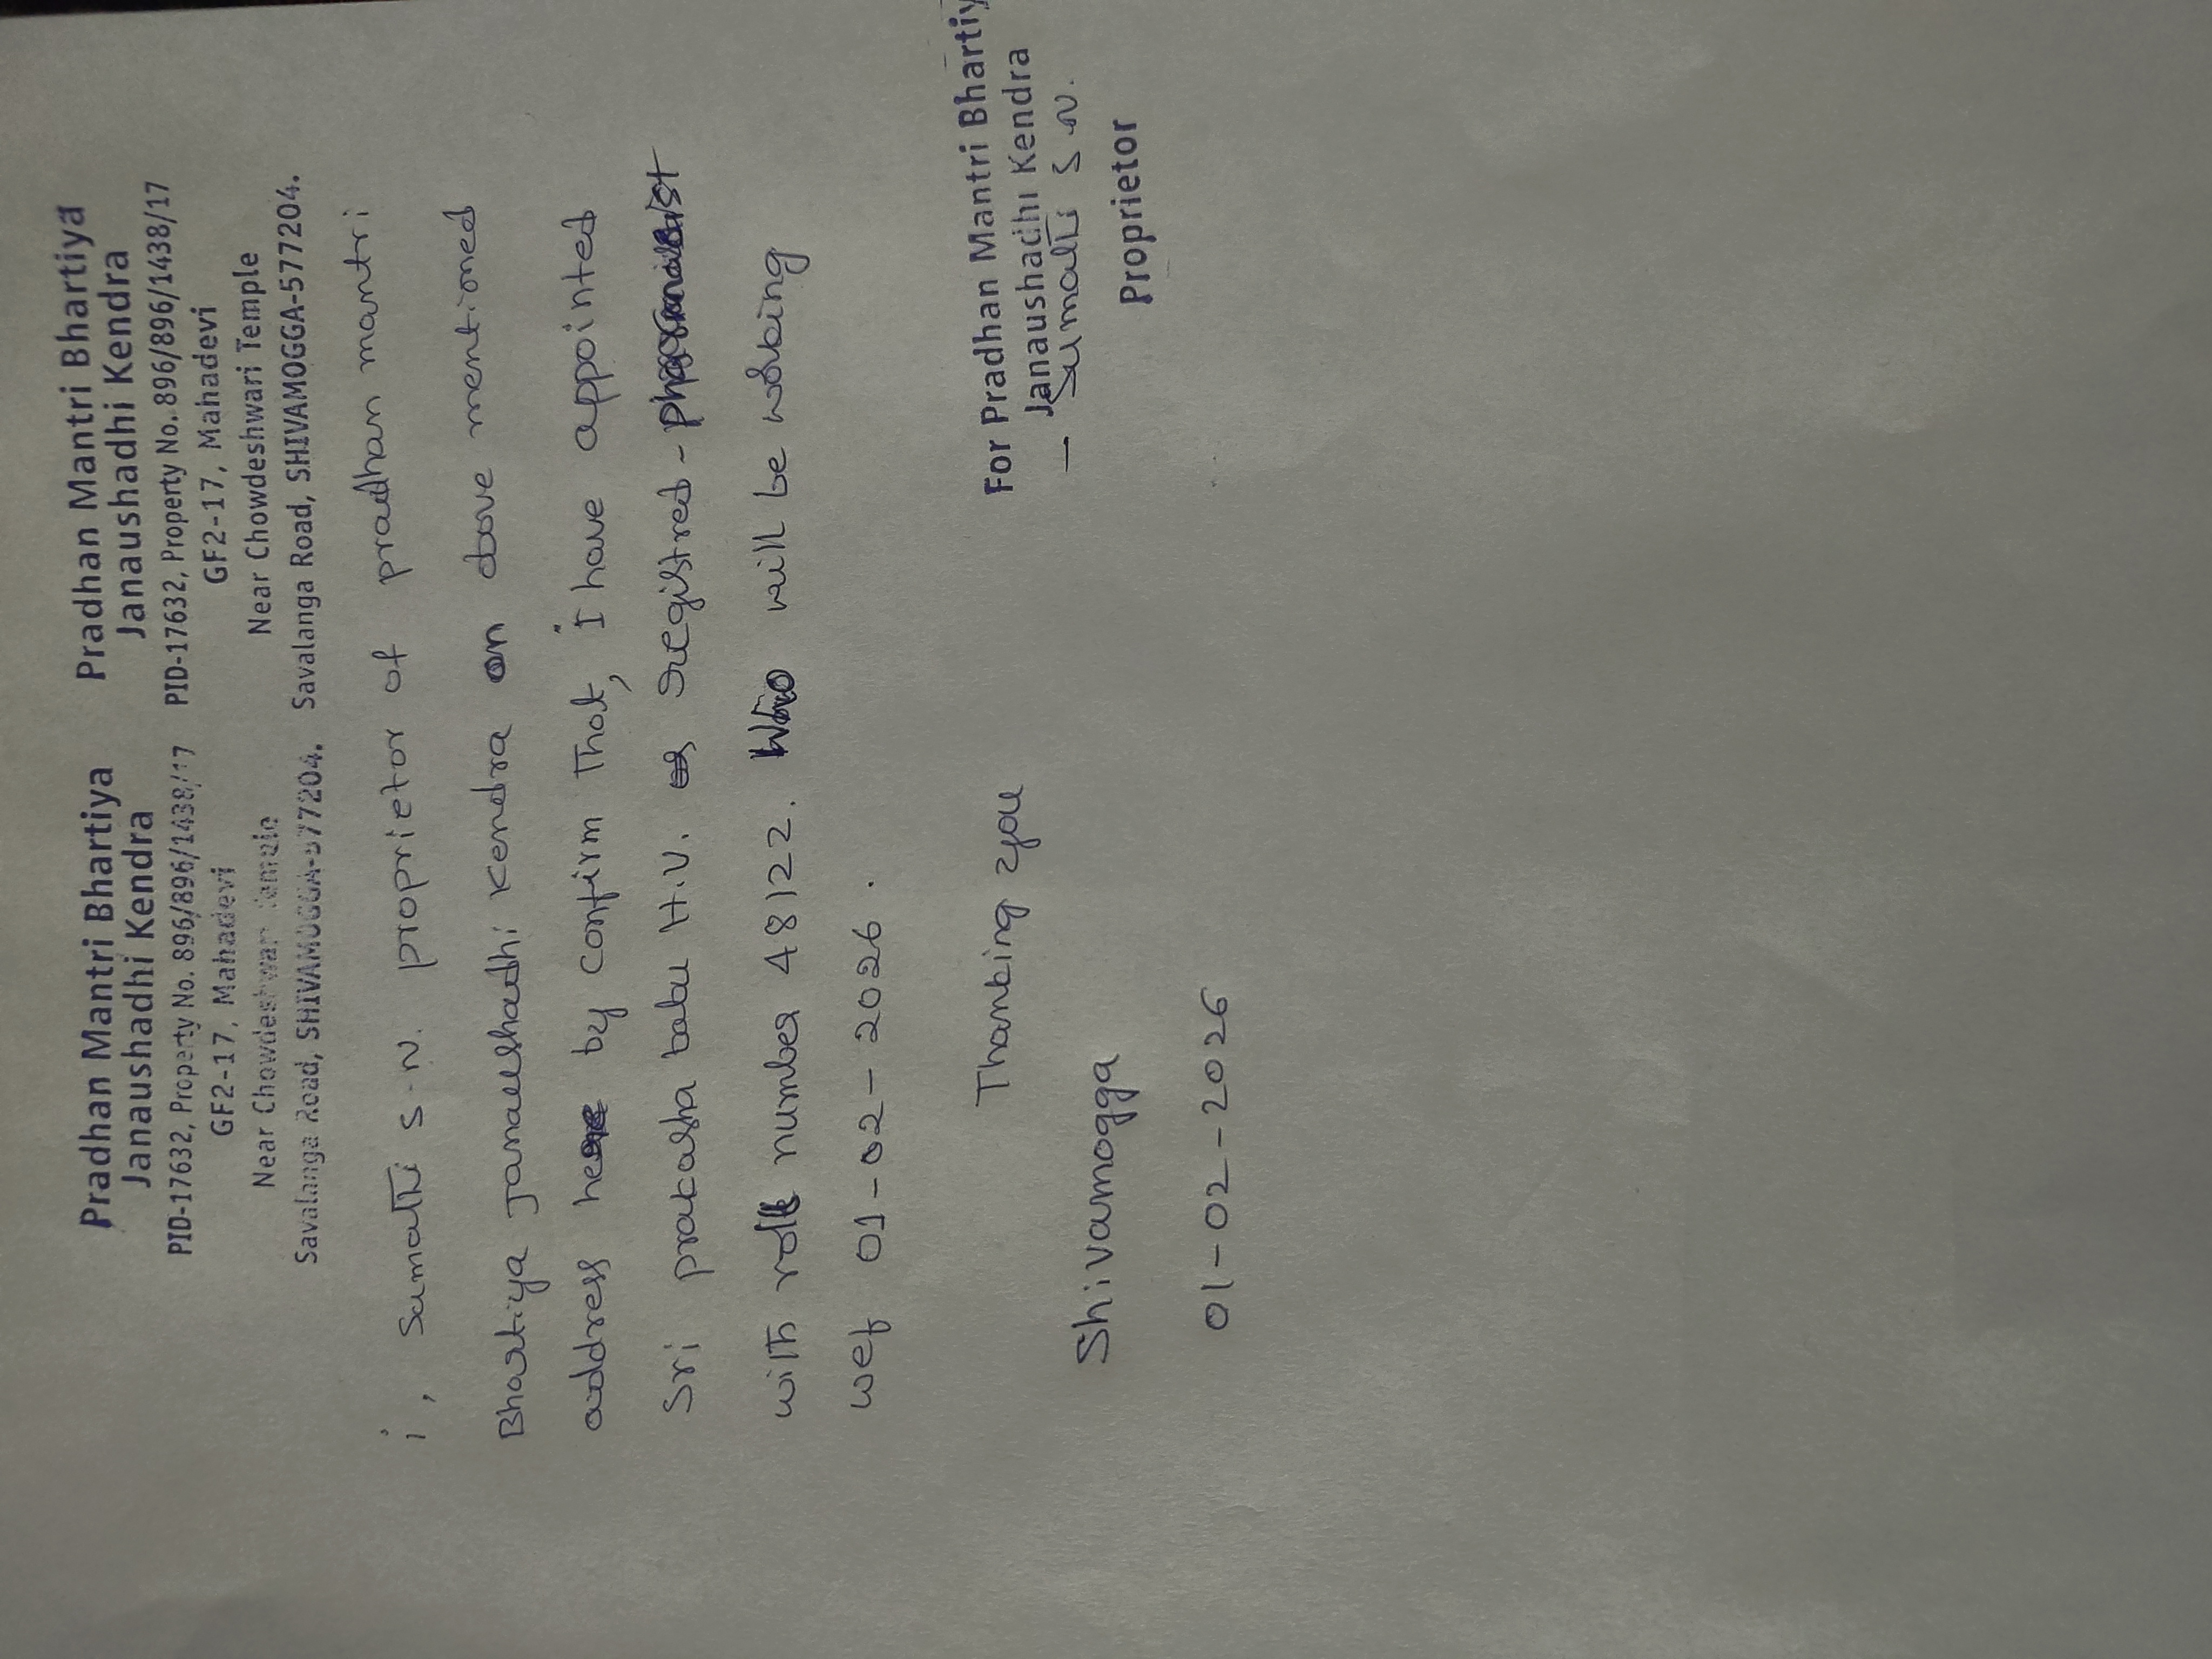 Pradhan Mantri Bhartiya
Janaushadhi Kendra
PID-17632, Property No. 896/896/1438/17
GF2-17, Mahadevi
Near Chowdeshwari Temple
Savalanga Road, SHIVAMOGGA-577204.
Pradhan Mantri Bhartiya
Janaushadhi Kendra
PID-17632, Property No. 896/896/1438/17
GF2-17, Mahadevi
Near Chowdeshwari Temple
Savalanga Road, SHIVAMOGGA-577204.
i, Sumathi S.N. proprietor of pradhan mantri
Bhartiya Janaushadhi Kendra on above mentioned
address here by confirm That, I have appointed
Sri prakasha babu H.V. registred - pharmacist
with roll number 48122. Who will be working
wef 01-02-2026.
Thanking you
For Pradhan Mantri Bhartiy
Janaushadhi Kendra
- Sumathi S.N.
Proprietor
Shivamogga
01-02-2026